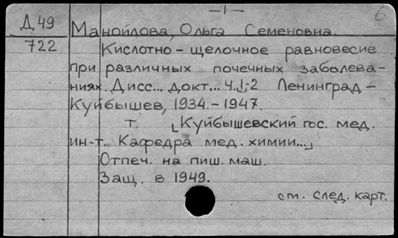 -1-
6
Д.49
722
Маноилова, Ольга Семеновна.
Кислотно-щелочное равновесие
при различных почечных заболева-
ниях. Дисс... докт... Ч.1-2 Ленинград -
Куйбышев, 1934.-1947.
т. [Куйбышевский гос. мед.
ин-т.. Кафедра мед. химии...]
Отпеч. на пиш. маш.
Защ. в 1949.
ст. след. карт.